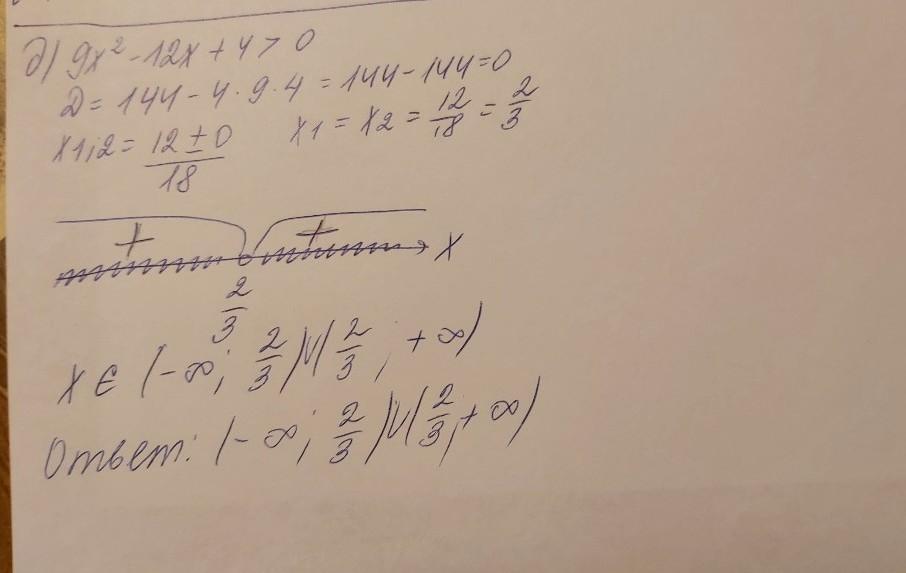 д) 9x² - 12x + 4 > 0
D = 144 - 4 · 9 · 4 = 144 - 144 = 0
x1,2 = 12 ± 0 / 18   x1 = x2 = 12/18 = 2/3
+ + x
2/3
x ∈ (-∞; 2/3) ∪ (2/3; +∞)
Ответ: (-∞; 2/3) ∪ (2/3; +∞)